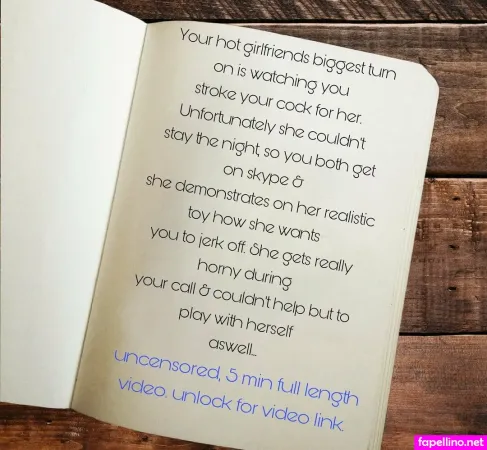 Your hot girlfriends biggest turn
on is watching you
stroke your cock for her.
Unfortunately she couldn't
stay the night, so you both get
on skype &
she demonstrates on her realistic
toy how she wants
you to jerk off. She gets really
horny during
your call & couldn't help but to
play with herself
aswell...
uncensored, 5 min full length
video. unlock for video link.
fapellino.net